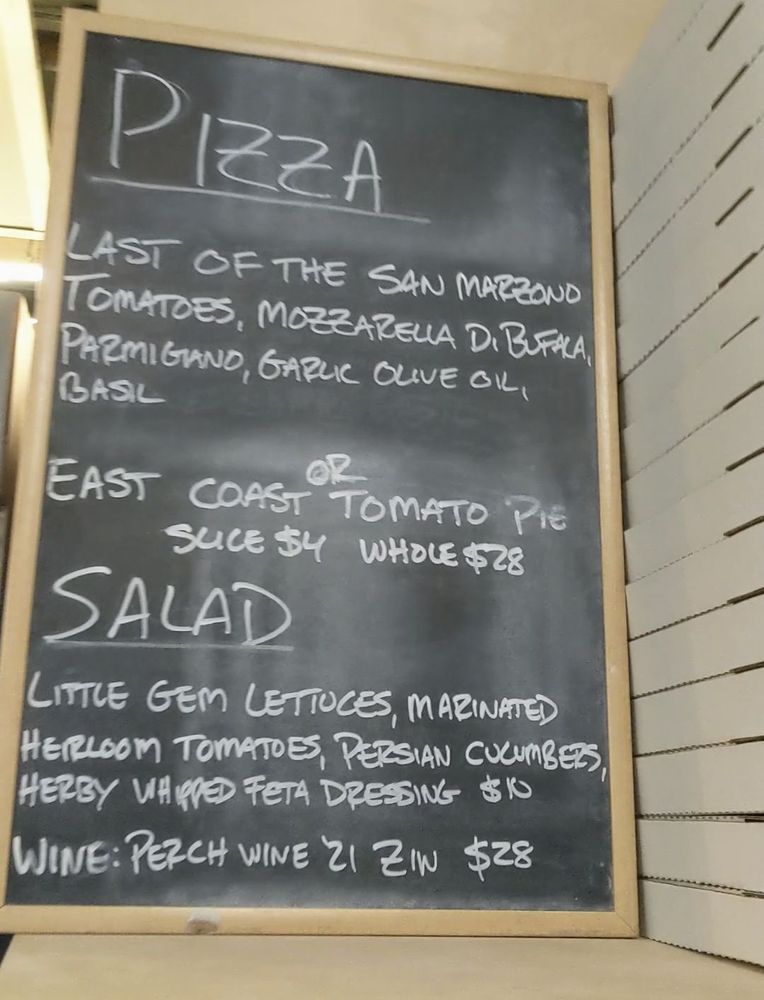 PIZZA
LAST OF THE SAN MARZONO
TOMATOES, MOZZARELLA DI BUFALA,
PARMIGIANO, GARLIC OLIVE OIL,
BASIL
OR
EAST COAST TOMATO PIE
SLICE $4 WHOLE $28
SALAD
LITTLE GEM LETTUCES, MARINATED
HEIRLOOM TOMATOES, PERSIAN CUCUMBERS,
HERBY WHIPPED FETA DRESSING $10
WINE: PERCH WINE '21 ZIN $28